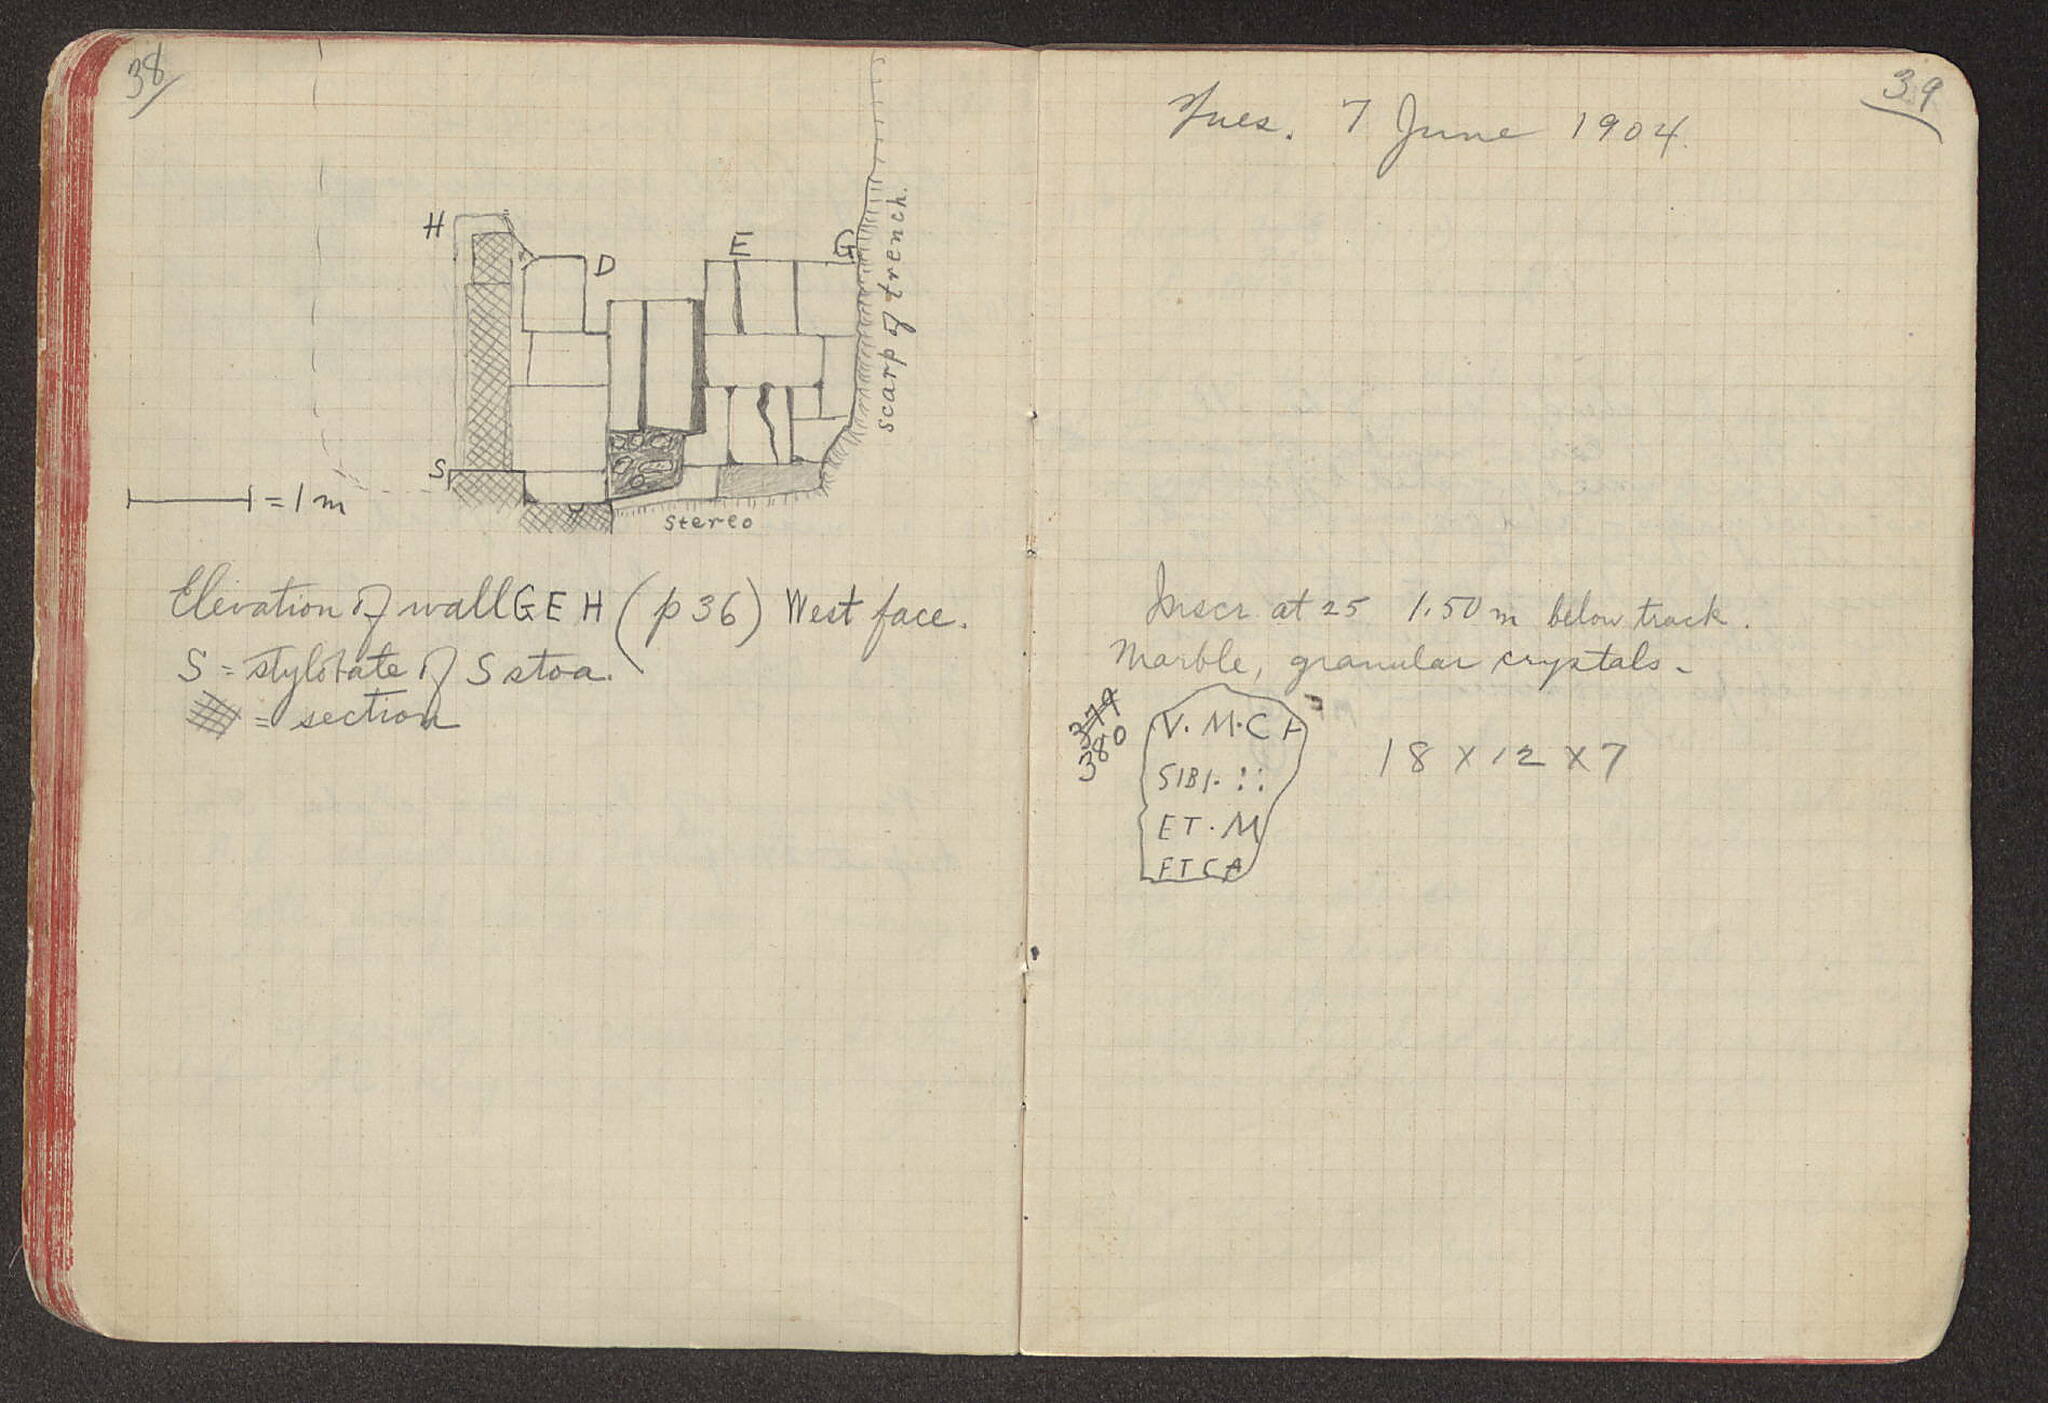 38
H
D
E
G
scarp of trench.
S
= 1 m
stereo
Elevation of wall G E H (p 36) West face.
S = stylobate of S stoa.
= section
39
Tues. 7 June 1904.
Inscr at 25 1.50 m below track.
Marble, granular crystals -
379
380
V. M. C F
SIBI. : :
ET. M
ETCA
18 x 12 x 7